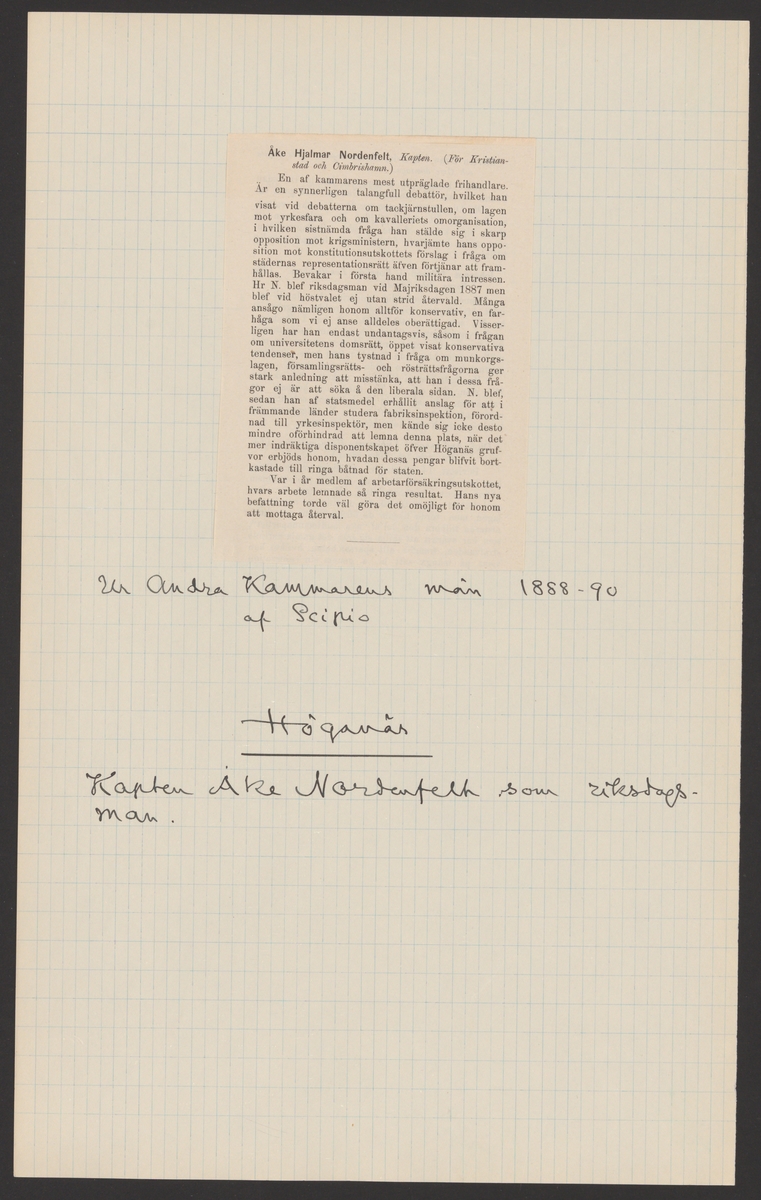 Åke Hjalmar Nordenfelt, Kapten. (För Kristian-
stad och Cimbrishamn.)
En af kammarens mest utpräglade frihandlare.
Är en synnerligen talangfull debattör, hvilket han
visat vid debatterna om tackjärnstullen, om lagen
mot yrkesfara och om kavalleriets omorganisation,
i hvilken sistnämda fråga han stälde sig i skarp
opposition mot krigsministern, hvarjämte hans oppo-
sition mot konstitutionsutskottets förslag i fråga om
städernas representationsrätt äfven förtjänar att fram-
hållas. Bevakar i första hand militära intressen.
Hr N. blef riksdagsman vid Majriksdagen 1887 men
blef vid höstvalet ej utan strid återvald. Många
ansågo nämligen honom alltför konservativ, en far-
håga som vi ej anse alldeles oberättigad. Visser-
ligen har han endast undantagsvis, såsom i frågan
om universitetens domsrätt, öppet visat konservativa
tendenser, men hans tystnad i fråga om munkorgs-
lagen, församlingsrätts- och rösträttsfrågorna ger
stark anledning att misstänka, att han i dessa frå-
gor ej är att söka å den liberala sidan. N. blef,
sedan han af statsmedel erhållit anslag för att i
främmande länder studera fabriksinspektion, förord-
nad till yrkesinspektör, men kände sig icke desto
mindre oförhindrad att lemna denna plats, när det
mer indräktiga disponentskapet öfver Höganäs gruf-
vor erbjöds honom, hvadan dessa pengar blifvit bort-
kastade till ringa båtnad för staten.
Var i år medlem af arbetarförsäkringsutskottet,
hvars arbete lemnade så ringa resultat. Hans nya
befattning torde väl göra det omöjligt för honom
att mottaga återval.
Ur Andra Kammarens män 1888-90
af Scipio
Höganäs
Kapten Åke Nordenfelt som riksdags-
man.